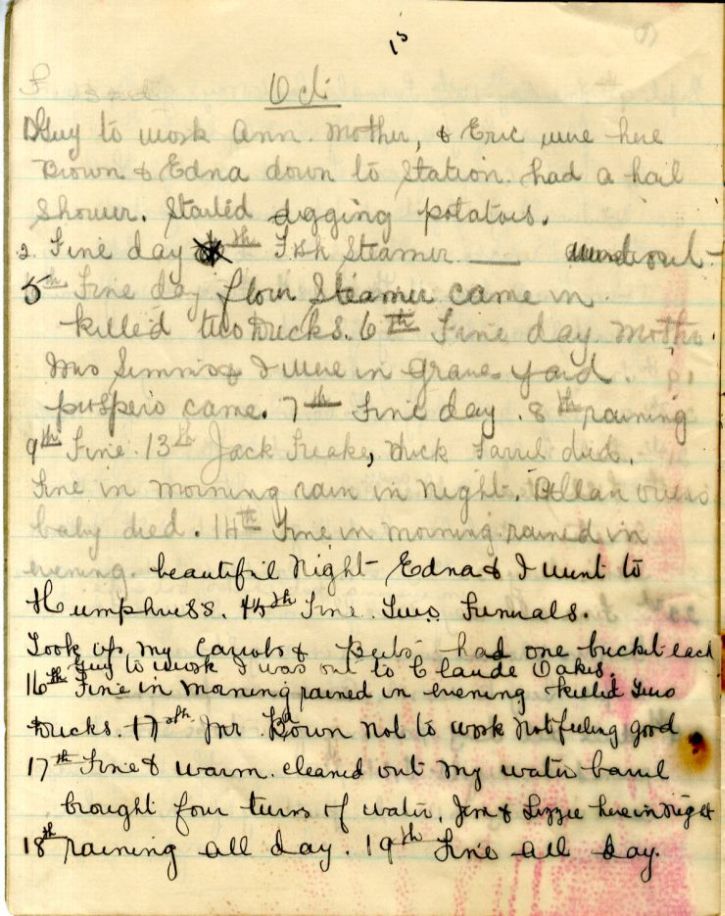 15
Oct
Guy to work Ann. Mother, & Eric were here
Brown & Edna down to Station. had a hail
Shower. Started digging potatoes.
2. Fine day Fish Steamer — went out
5th Fine day flour Steamer came in
killed two Ducks. 6th Fine day Mother
Mrs Simms & I were in grave yard.
prospero came. 7th Fine day. 8th raining
9th Fine. 13th Jack Freake, Dick Farrel died.
Fine in morning rain in night. Allan
baby died. 14th Fine in morning rained in
evening. beautiful Night Edna & I went to
Humphress. 15th Fine. Two Funrals.
Took up my Carrots & Beets, had one bucket each
Guy to work I was out to Claude Oakes.
16th Fine in morning rained in evening killed two
Ducks. 17th Mr Brown not to work not feeling good
17th Fine & warm. cleaned out my water barrel
brought four turns of water, Jim & Lizzie here in Night
18th raining all day. 19th Fine all day.